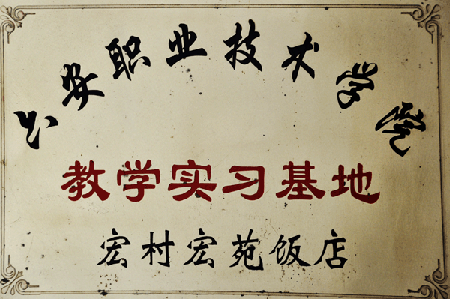 六安职业技术学院
教学实习基地
宏村宏苑饭店